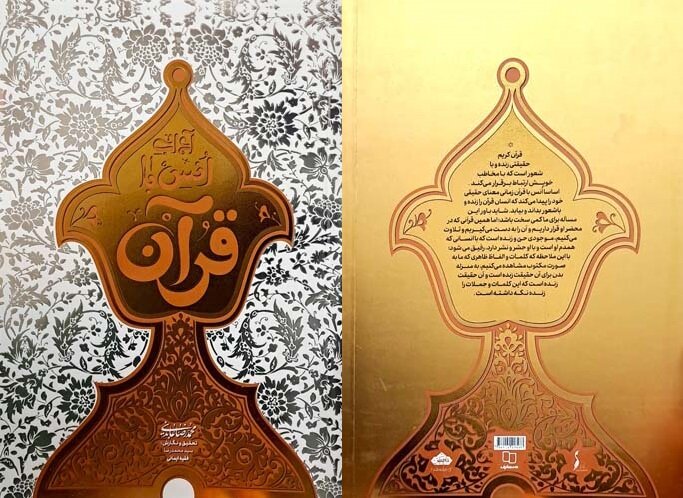 آداب
انس با
قرآن
محمدرضا عابدینی
تحقیق و نگارش:
سید محمدرضا
فقیه ایمانی
قرآن کریم
حقیقتی زنده و با
شعور است که با مخاطب
خویش ارتباط برقرار می‌کند.
اساسا انس با قرآن زمانی معنای حقیقی
خود را پیدا می‌کند که انسان قرآن را زنده و
باشعور بداند و بیابد. شاید باور این
مسأله برای ما کمی سخت باشد؛ اما همین قرآنی که در
محضر او قرار داریم و آن را به دست می‌گیریم و تلاوت
می‌کنیم، موجودی حیّ و زنده است که با انسانی که
همدم او است و با او حشر و نشر دارد، رفیق می شود؛
با این ملاحظه که کلمات و الفاظ ظاهری که ما به
صورت مکتوب مشاهده می‌کنیم، به منزله
بدن برای آن حقیقت زنده است و آن حقیقت
زنده است که این کلمات و جملات را
زنده نگه داشته است.